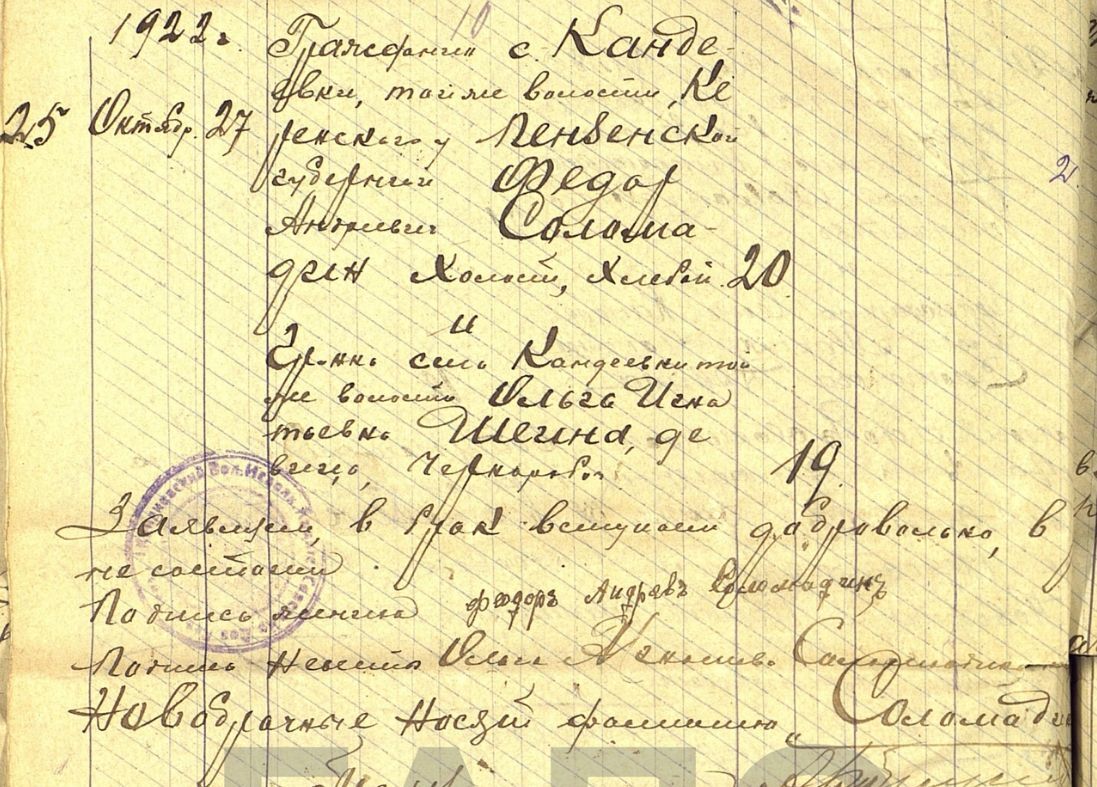 10
1922 г. Гражданин с. Канде-
евки, той же волости, Ке
25 Октябр. 27 ренского у Пензенской
губернии Федор 2
Андреевич Солома-
дин холост, хлебоп. 20
и
Гр-нка села Кандеевки той
же волости Ольга Игна
тьевна Шегина, де
вица, чернораб. 19
Заявляем, в брак вступаем добровольно, в
не состоим
Подпись жениха Феодоръ Андревъ Соломадинъ
Подпись невеста Ольга
Новобрачные носят фамилию „Соломадин
ГАПО